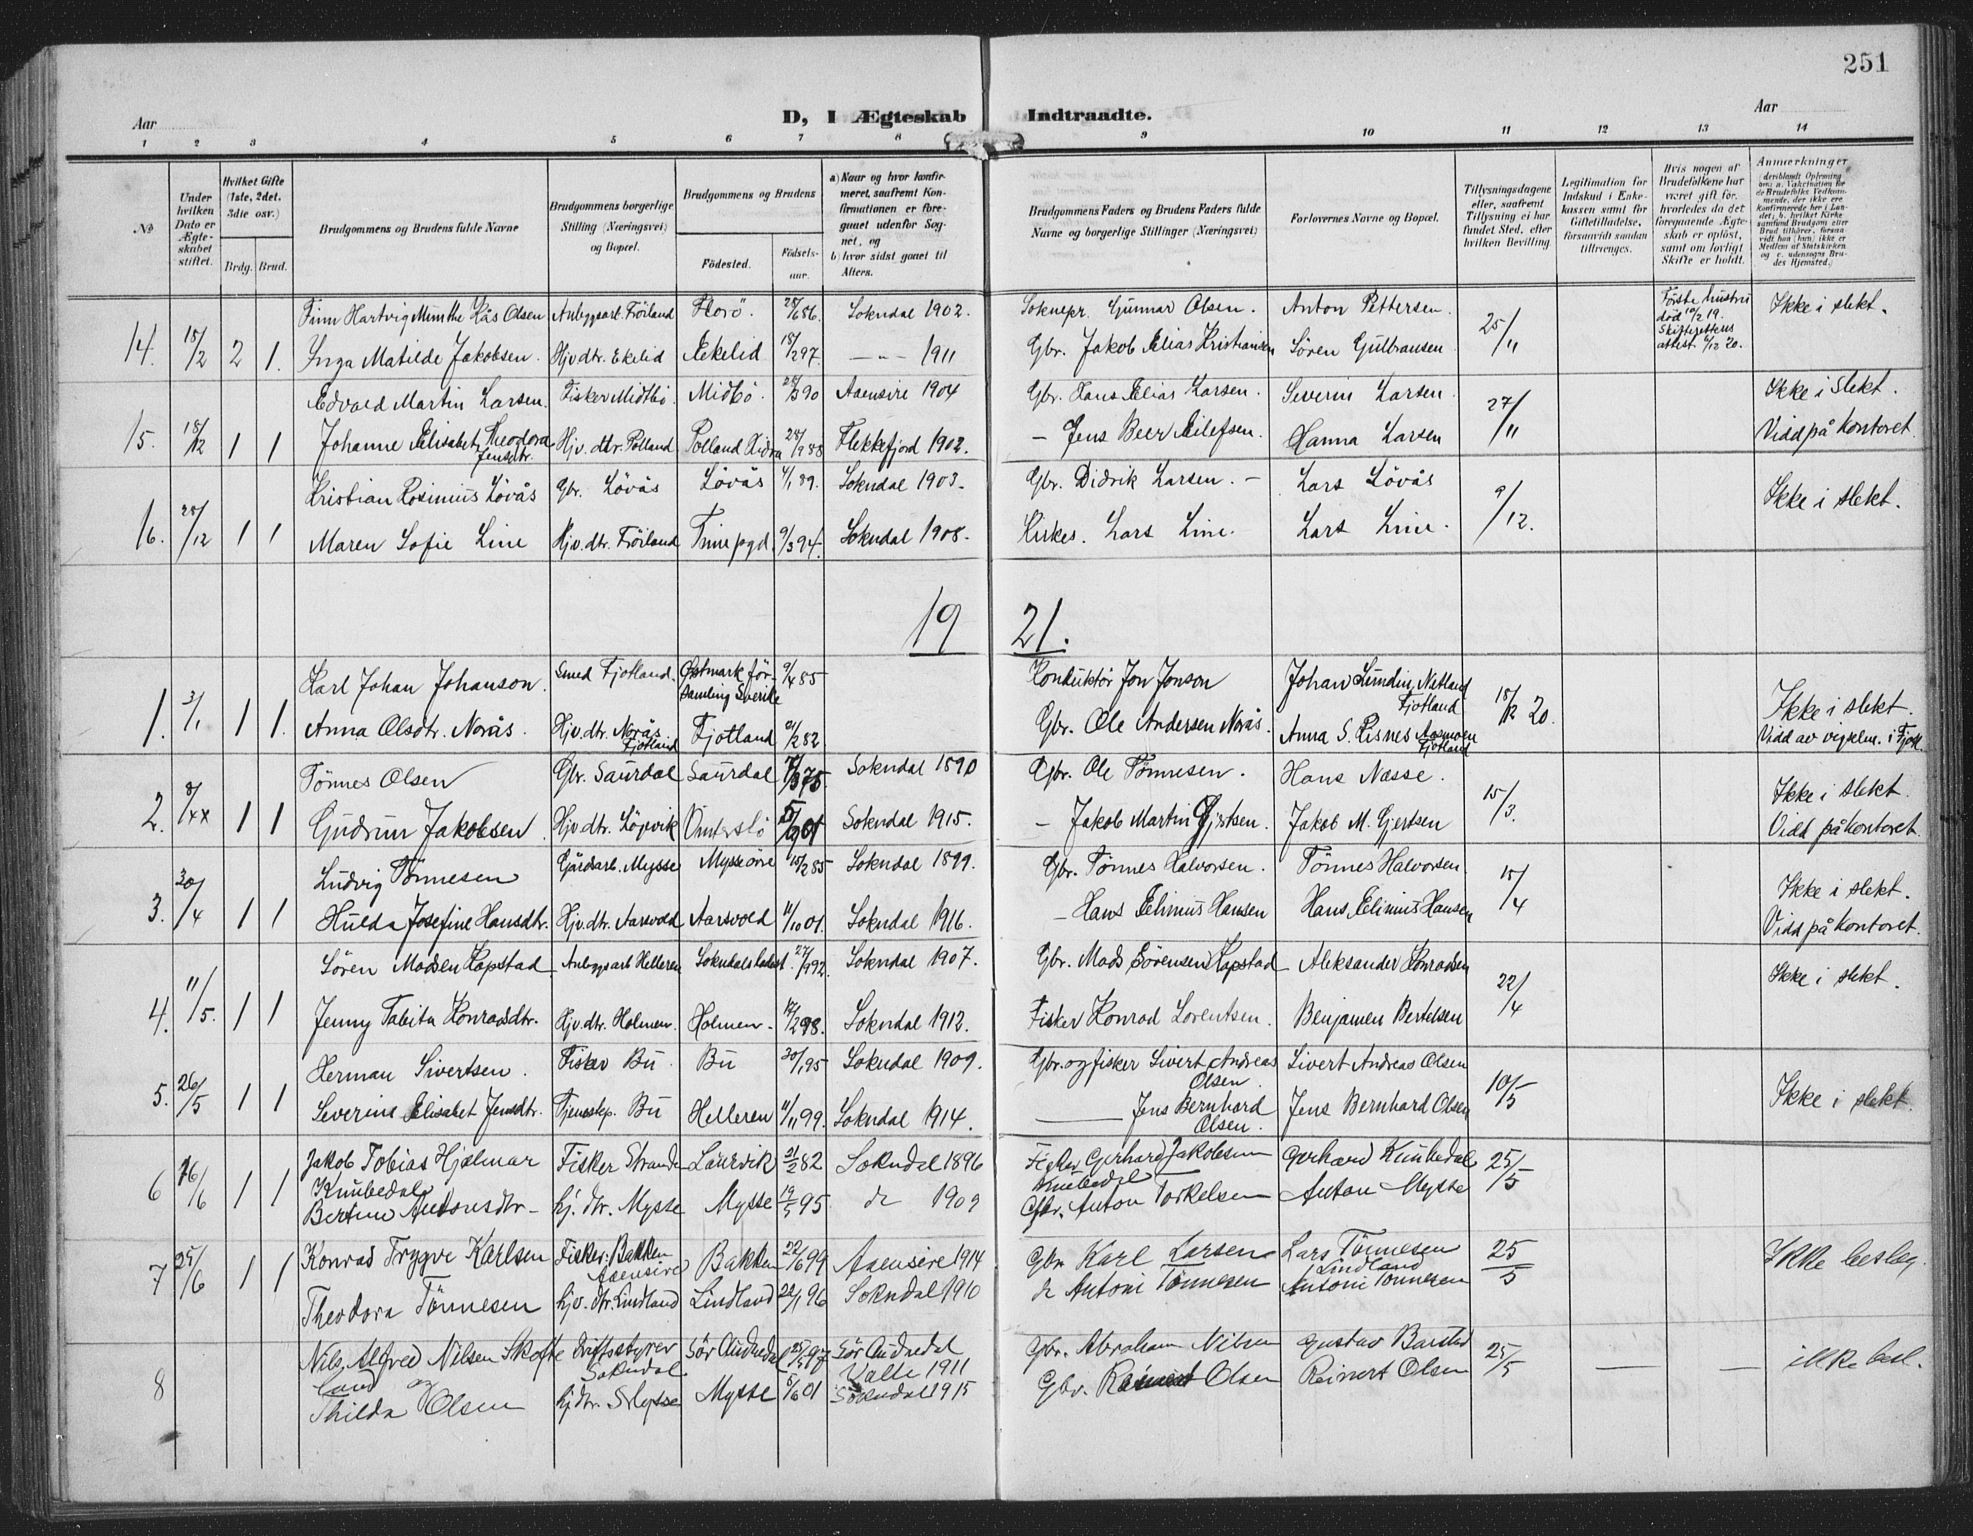 251
Aar
D, I Ægteskab Indtraadte.
Aar
1 2 3 4 5 6 7 8 9 10 11 12 13 14
No
Under hvilken Dato er Ægteskabet stiftet.
Hvilket Gifte (1ste, 2det, 3die osv.)
Brdg. Brud.
Brudgommens og Brudens fulde Navne
Brudgommens borgerlige Stilling (Næringsvei) og Bopæl.
Brudgommens og Brudens
Födested.
Födselsaar.
a) Naar og hvor konfirmeret, saafremt Konfirmationen er foregaaet udenfor Sognet, og
b) hvor sidst gaaet til Alters.
Brudgommens Faders og Brudens Faders fulde Navne og borgerlige Stillinger (Næringsvei)
Forlovernes Navne og Bopæl.
Tillysningsdagene eller, saafremt Tillysning ei har fundet Sted, efter hvilken Bevilling.
Legitimation for Indskud i Enkekassen samt for Giftetilladelse, forsaavidt saadan tiltrænges.
Hvis nogen af Brudefolkene har været gift för, hvorledes da det foregaaende Ægteskab er oplöst, samt om lovligt Skifte er holdt.
Anmerkninger
14. 18/12 2 1. Finn Hartvig Munthe Kås Olsen Anleggsarb. Fröiland Florö. 28/6 86. Sokndal 1902. Soknepr. Gunnar Olsen. Anton Pettersen. 25/11 Förste hustru död 10/2 19. Skifterettens attest 6/12 20. Ikke i slekt.
Inga Matilde Jakobsen. Hjv. dtr. Ekelid Ekelid 18/2 97. —"— 1911 Gbr. Jakob Elias Kristiansen Sören Gulbransen
15. 18/12 1 1 Edvald Martin Larsen. Fisker Midtbö. Midbö. 28/3 90 Aaensire 1904 Gbr. Hans Elias Larsen. Severin Larsen. 27/11 Ikke i slekt.
Johanne Elisabet Theodora Jensdtr. Hjv. dtr. Rolland Rolland Hidra 28/9 88 Flekkefjord 1902. — Jens Beer Eilefsen. Hanna Larsen Vidd på kontoret.
16. 28/12 1 1 Kristian Rosinius Lövås Gbr. Lövås Lövås 4/1 89. Sokndal 1903. Gbr. Didrik Larsen. — Lars Lövås 9/12. Ikke i slekt.
Maren Sofie Line Hjv. dtr. Fröiland Time pgd. 9/3 94. Sokndal 1908. Kirkes. Lars Line. Lars Line.
19 21.
1. 3/1 1 1. Karl Johan Johanson. Smed Fjotland. Östmark församling Sverike 9/4 85 Konduktör Jon Jonson Johan Lundin, Netland Fjotland 18/12 20. Ikke i slekt.
Anna Olsdtr. Norås. Hjv. dtr. Norås Fjotland Fjotland 21/2 82 Gbr. Ole Andersen Norås. Anna S. Risnes Aasmoen Fjotland Vidd av vigselm. i Fjotl.
2. 8/4 1 1 Tönnes Olsen Gbr. Saurdal Saurdal 3 75 Sokndal 1890 Gbr. Ole Tönnesen. Hans Næsse. 15/3. Ikke i slekt.
Gudrun Jakobsen. Hjv. dtr. Lögvik 01 Sokndal 1915. — Jakob Martin Gjertsen. Jakob M. Gjertsen Vidd på kontoret.
3. 30/4 1 1 Ludvig Tönnesen Gårdsarb. Mysse Mysse övre 15/2 85 Sokndal 1899. Gbr. Tönnes Halvorsen. Tönnes Halvorsen 15/4 Ikke i slekt.
Hulda Josefine Hansdtr. Hjv. dtr. Aarsvold Aarsvold 11/10 01. Sokndal 1916. — Hans Elinius Hansen Hans Elinius Hansen Vidd på kontoret.
4. 11/5. 1 1 Sören Madsen Kopstad Anleggsarb Helleren Sokndals ladest. 27/9 92 Sokndal 1907. Gbr. Mads Sörensen Kopstad Aleksander Konradsen 22/4 Ikke i slekt.
Jenny Tabita Konradsdtr. Hjv. dtr. Holmen. Holmen. 17/2 98. Sokndal 1912. Fisker Konrad Lorentsen. Benjamin Bertelsen
5. 26/5 1 1 Herman Sivertsen. Fisker Bu. Bu 30/1 95 Sokndal 1909. Gbr. og fisker Sivert Andreas Olsen. Sivert Andreas Olsen 10/5 Ikke i slekt.
Severine Elisabet Jensdtr. Tjenestep. Bu Helleren 11/11 99. Sokndal 1914. — Jens Bernhard Olsen. Jens Bernhard Olsen
6 16/6 1 1 Jakob Tobias Hjalmar Knubedal Fisker Strande Laurvik 21/2 82 Sokndal 1896 Fisker Gerhard Jakobsen Knubedal Gerhard Knubedal 25/5
Bertine Antonsdtr. Hj. dtr. Mysse Mysse 19/5 95 do 1909 Gbr. Anton Torkelsen Anton Mysse
7 25/6 1 1 Konrad Trygve Karlsen Fisker. Bakken Aaensire Bakken 22/6 99 Aaensire 1914 Gbr Karl Larsen Lars Tönnesen Lindland 25/5 Ikke beslegt.
Theodora Tönnesen hjv. dtr. Lindland Lindland 22/1 96 Sokndal 1910 do Antoni Tönnesen Antoni Tönnesen
8 Nils Alfred Nilsen Skofteland og Driftsstyrer Sokndal Sör Audnedal 97 Sör Audnedal Valle 1911 Gbr. Abraham Nilsen Gustav Barstad 25/5 — — ikke besl.
Thilda Olsen hj dtr. Mysse Mysse 5/6 01 Sokndal 1915 Gbr. Reinert Olsen Reinert Olsen